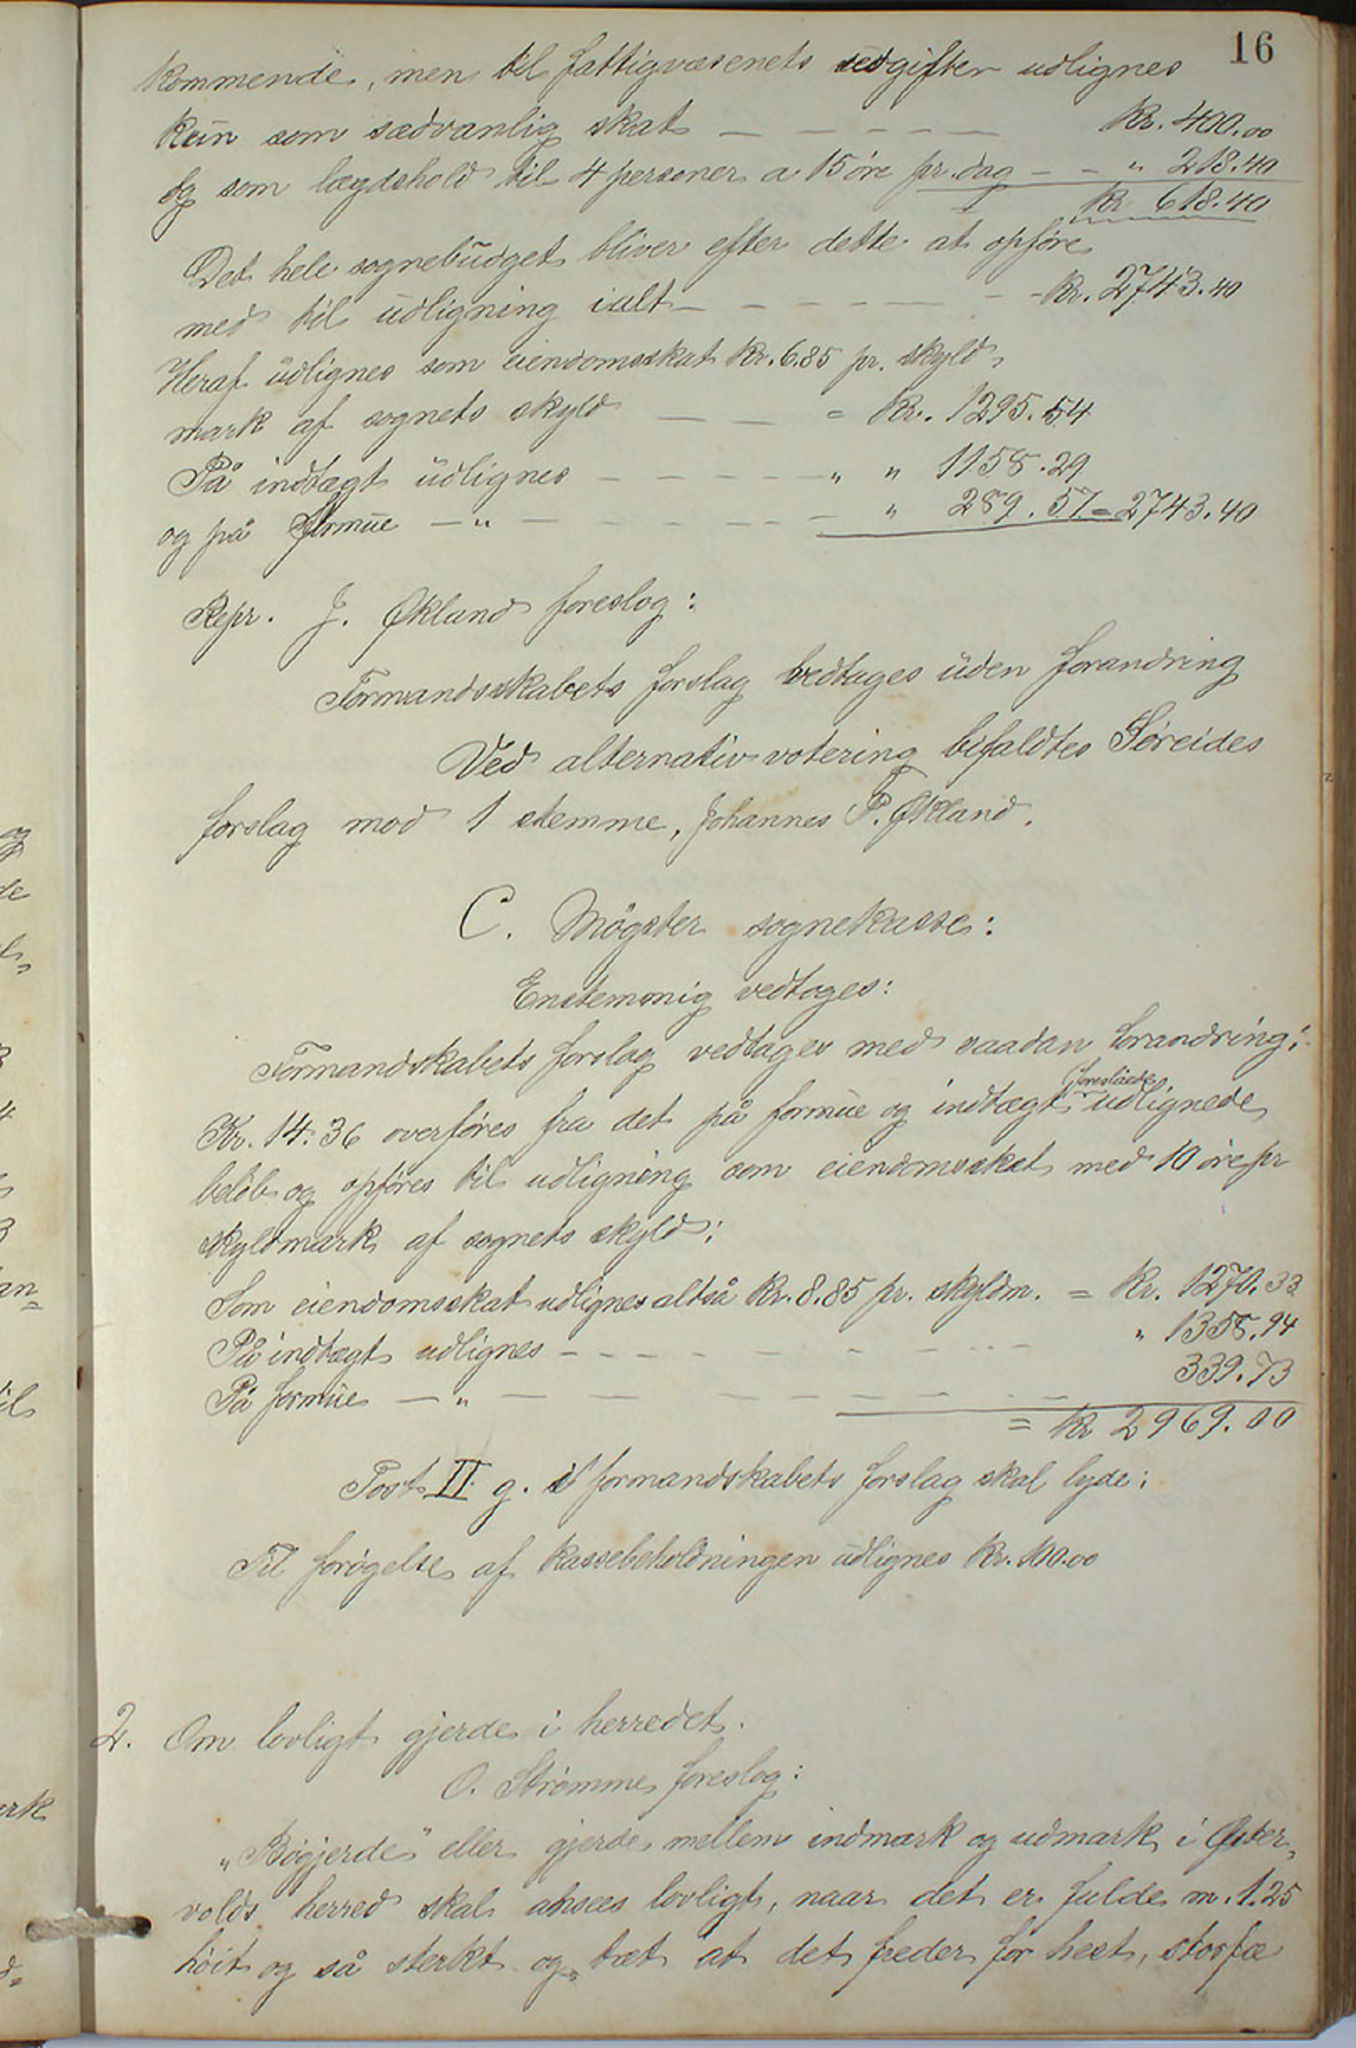 16
kommende, men til fattigvæsenets udgifter udlignes
kun som sædvanlig skat — — — — — — Kr. 400.00
og som lægdshold til 4 personer a 15 øre pr. dag — — " 218.40
Kr. 618.40
Det hele sognebudget bliver efter dette at opføre
med til udligning ialt — — — — — — — Kr. 2743.40
Heraf udlignes som eiendomsskat Kr. 6.85 pr. skyld-
mark af sognets skyld — — — = Kr. 1295.54
På indtægt udlignes — — — — — " " 1158.29
og på formue — " — — — — — — " 289.57 = 2743.40
Repr. J. Økland foreslog:
Formandsskabets forslag vedtages uden forandring
Ved alternativ votering bifaldtes Søreides
forslag mod 1 stemme, Johannes P. Økland.
C. Møgster sognekasse:
Enstemmig vedtoges:
Formandskabets forslag vedtages med saadan forandring:
Kr. 14.36 overføres fra det på formue og indtægt foreslåede udlignede
beløb og opføres til udligning som eiendomsskat med 10 øre pr
skyldmark af sognets skyld;
Som eiendomsskat udlignes altså Kr. 8.85 pr. skyldm. = Kr. 1270.33
På indtægt udlignes — — — — — — — — " 1358.94
På formue — " — — — — — — — 339.73
= Kr 2969.00
Post II g. i formandskabets forslag skal lyde:
Til forøgelse af kassebeholdningen udlignes Kr. 100.00
2. Om lovligt gjerde i herredet.
O. Strømme foreslog:
"Bøgjerde" eller gjerde mellem indmark og udmark i Øster-
volds herred skal ansees lovligt, naar det er fulde m. 1.25
høit og så sterkt og tæt at det freder for hest, storfæ